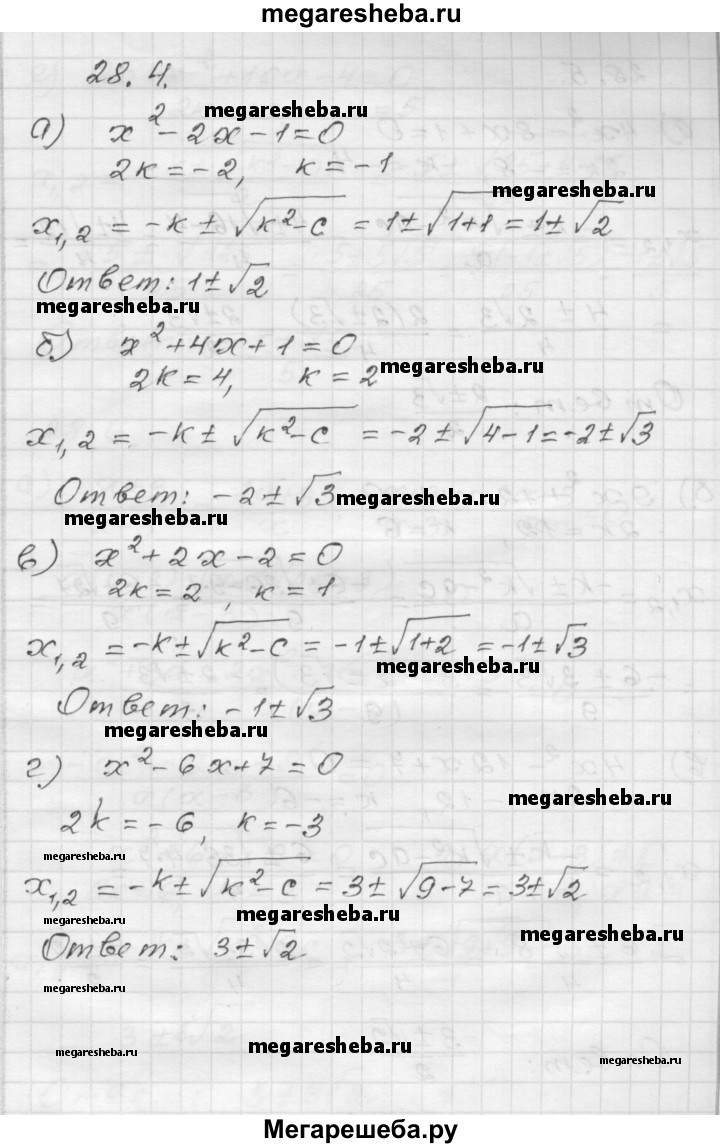 megaresheba.ru
28.4.
megaresheba.ru
а) x² - 2x - 1 = 0
2k = -2, k = -1
megaresheba.ru
x₁,₂ = -k ± √(k² - c) = 1 ± √(1+1) = 1 ± √2
Ответ: 1 ± √2
megaresheba.ru
б) x² + 4x + 1 = 0
megaresheba.ru
2k = 4, k = 2
x₁,₂ = -k ± √(k² - c) = -2 ± √(4-1) = -2 ± √3
Ответ: -2 ± √3
megaresheba.ru
megaresheba.ru
в) x² + 2x - 2 = 0
2k = 2, k = 1
x₁,₂ = -k ± √(k² - c) = -1 ± √(1+2) = -1 ± √3
megaresheba.ru
Ответ: -1 ± √3
megaresheba.ru
г) x² - 6x + 7 = 0
megaresheba.ru
2k = -6, k = -3
megaresheba.ru
x₁,₂ = -k ± √(k² - c) = 3 ± √(9-7) = 3 ± √2
megaresheba.ru
megaresheba.ru
megaresheba.ru
Ответ: 3 ± √2
megaresheba.ru
megaresheba.ru
megaresheba.ru
megaresheba.ru
Мегарешеба.ру